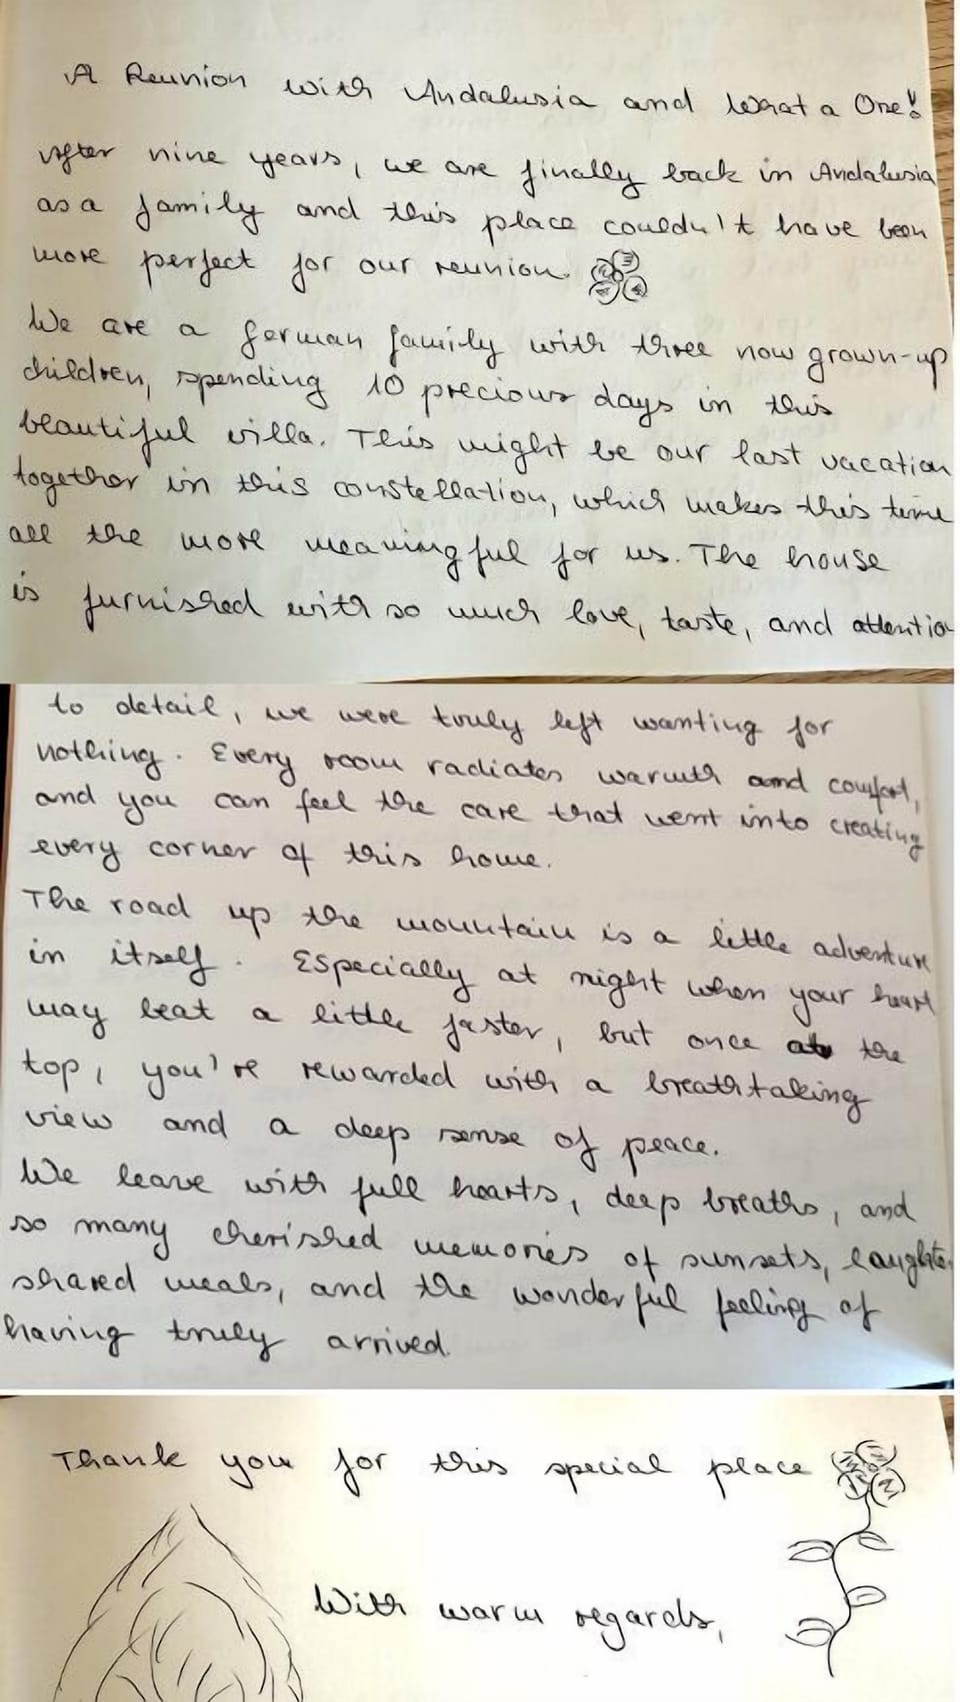 A Reunion with Andalusia and What a One!
After nine years, we are finally back in Andalusia
as a family and this place couldn't have been
more perfect for our reunion.
We are a german family with three now grown-up
children, spending 10 precious days in this
beautiful villa. This might be our last vacation
together in this constellation, which makes this time
all the more meaningful for us. The house
is furnished with so much love, taste, and attentio
to detail, we were truly left wanting for
nothing. Every room radiates warmth and comfort,
and you can feel the care that went into creating
every corner of this home.
The road up the mountain is a little adventure
in itself. Especially at night when your heart
may beat a little faster, but once at the
top, you're rewarded with a breathtaking
view and a deep sense of peace.
We leave with full hearts, deep breaths, and
so many cherished memories of sunsets, laughter
shared meals, and the wonderful feeling of
having truly arrived.
Thank you for this special place
With warm regards,